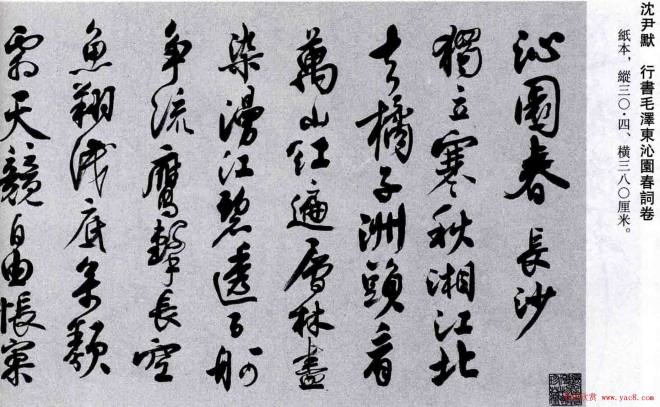 沈尹默　行書毛澤東沁園春詞卷
紙本，縱三〇·四、橫三八〇厘米。
沁園春 長沙
獨立寒秋湘江北
去橘子洲頭看
萬山紅遍層林盡
染漫江碧透百舸
爭流鷹擊長空
魚翔淺底萬類
霜天競自由悵寥
欣赏 www.yac8.com